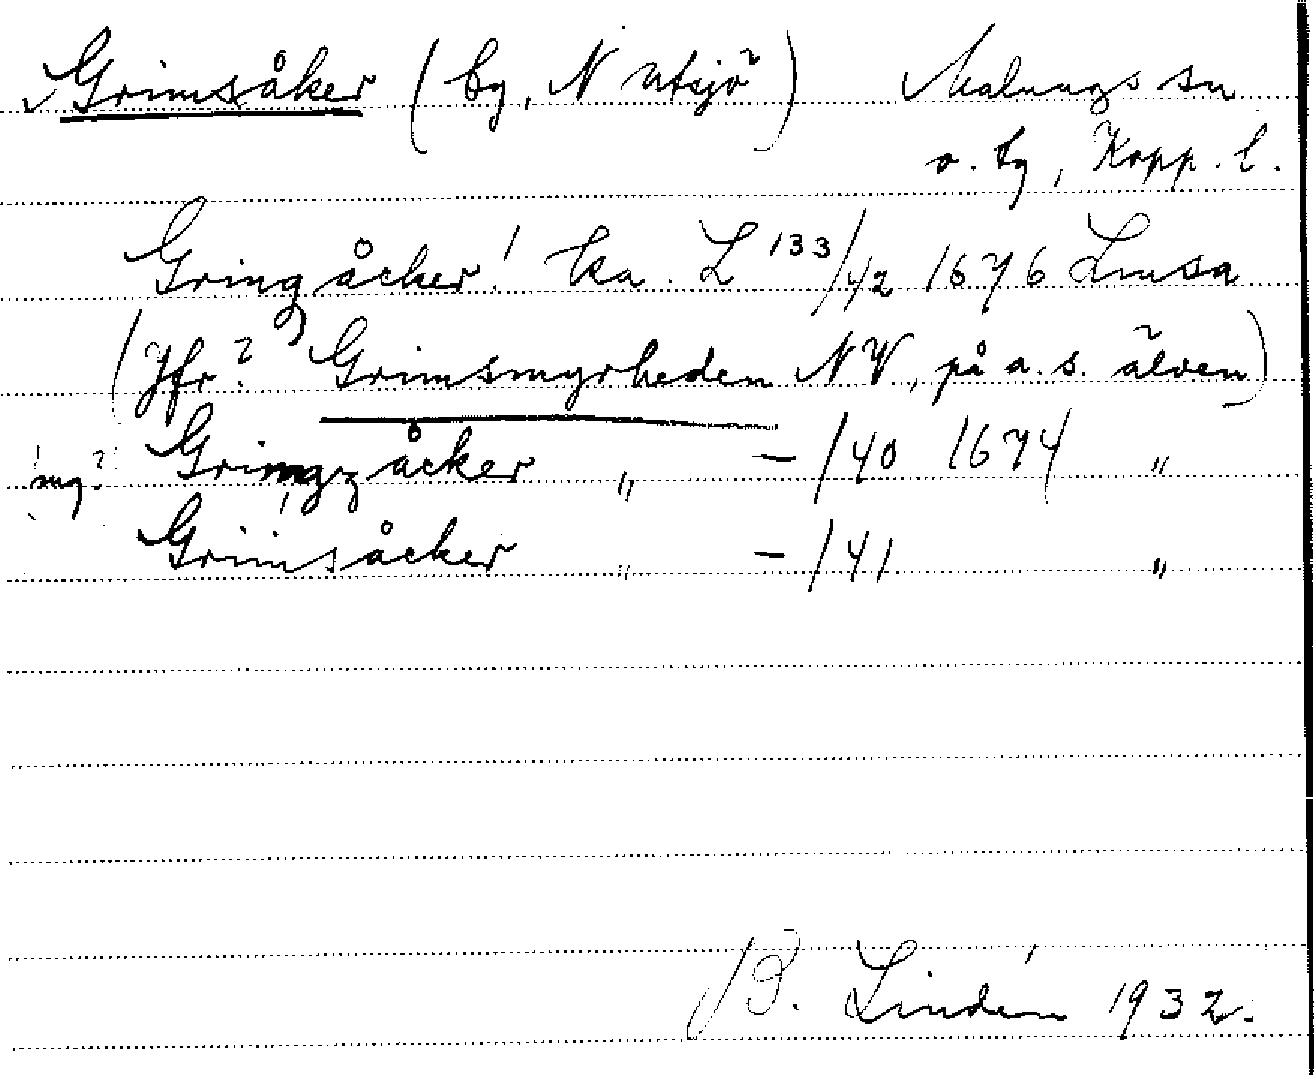 Grimsåker (by, N Utsjö) Malungs sn
o. tg, Kopp. l.
Gringåcker! ka. L 133/42 1676 Lmsa
(Jfr? Grimsmyrheden NV, på a. s. älven)
mg? Gringzåcker „ – /40 1674 „
Grimsåcker „ – /41 „
B. Lindén 1932.